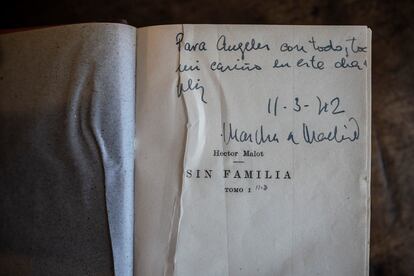 Para Angeles con todo, to
mi cariño en este dia
feliz
11-3-42
Marcha a Madrid
Hector Malot
SIN FAMILIA
TOMO I